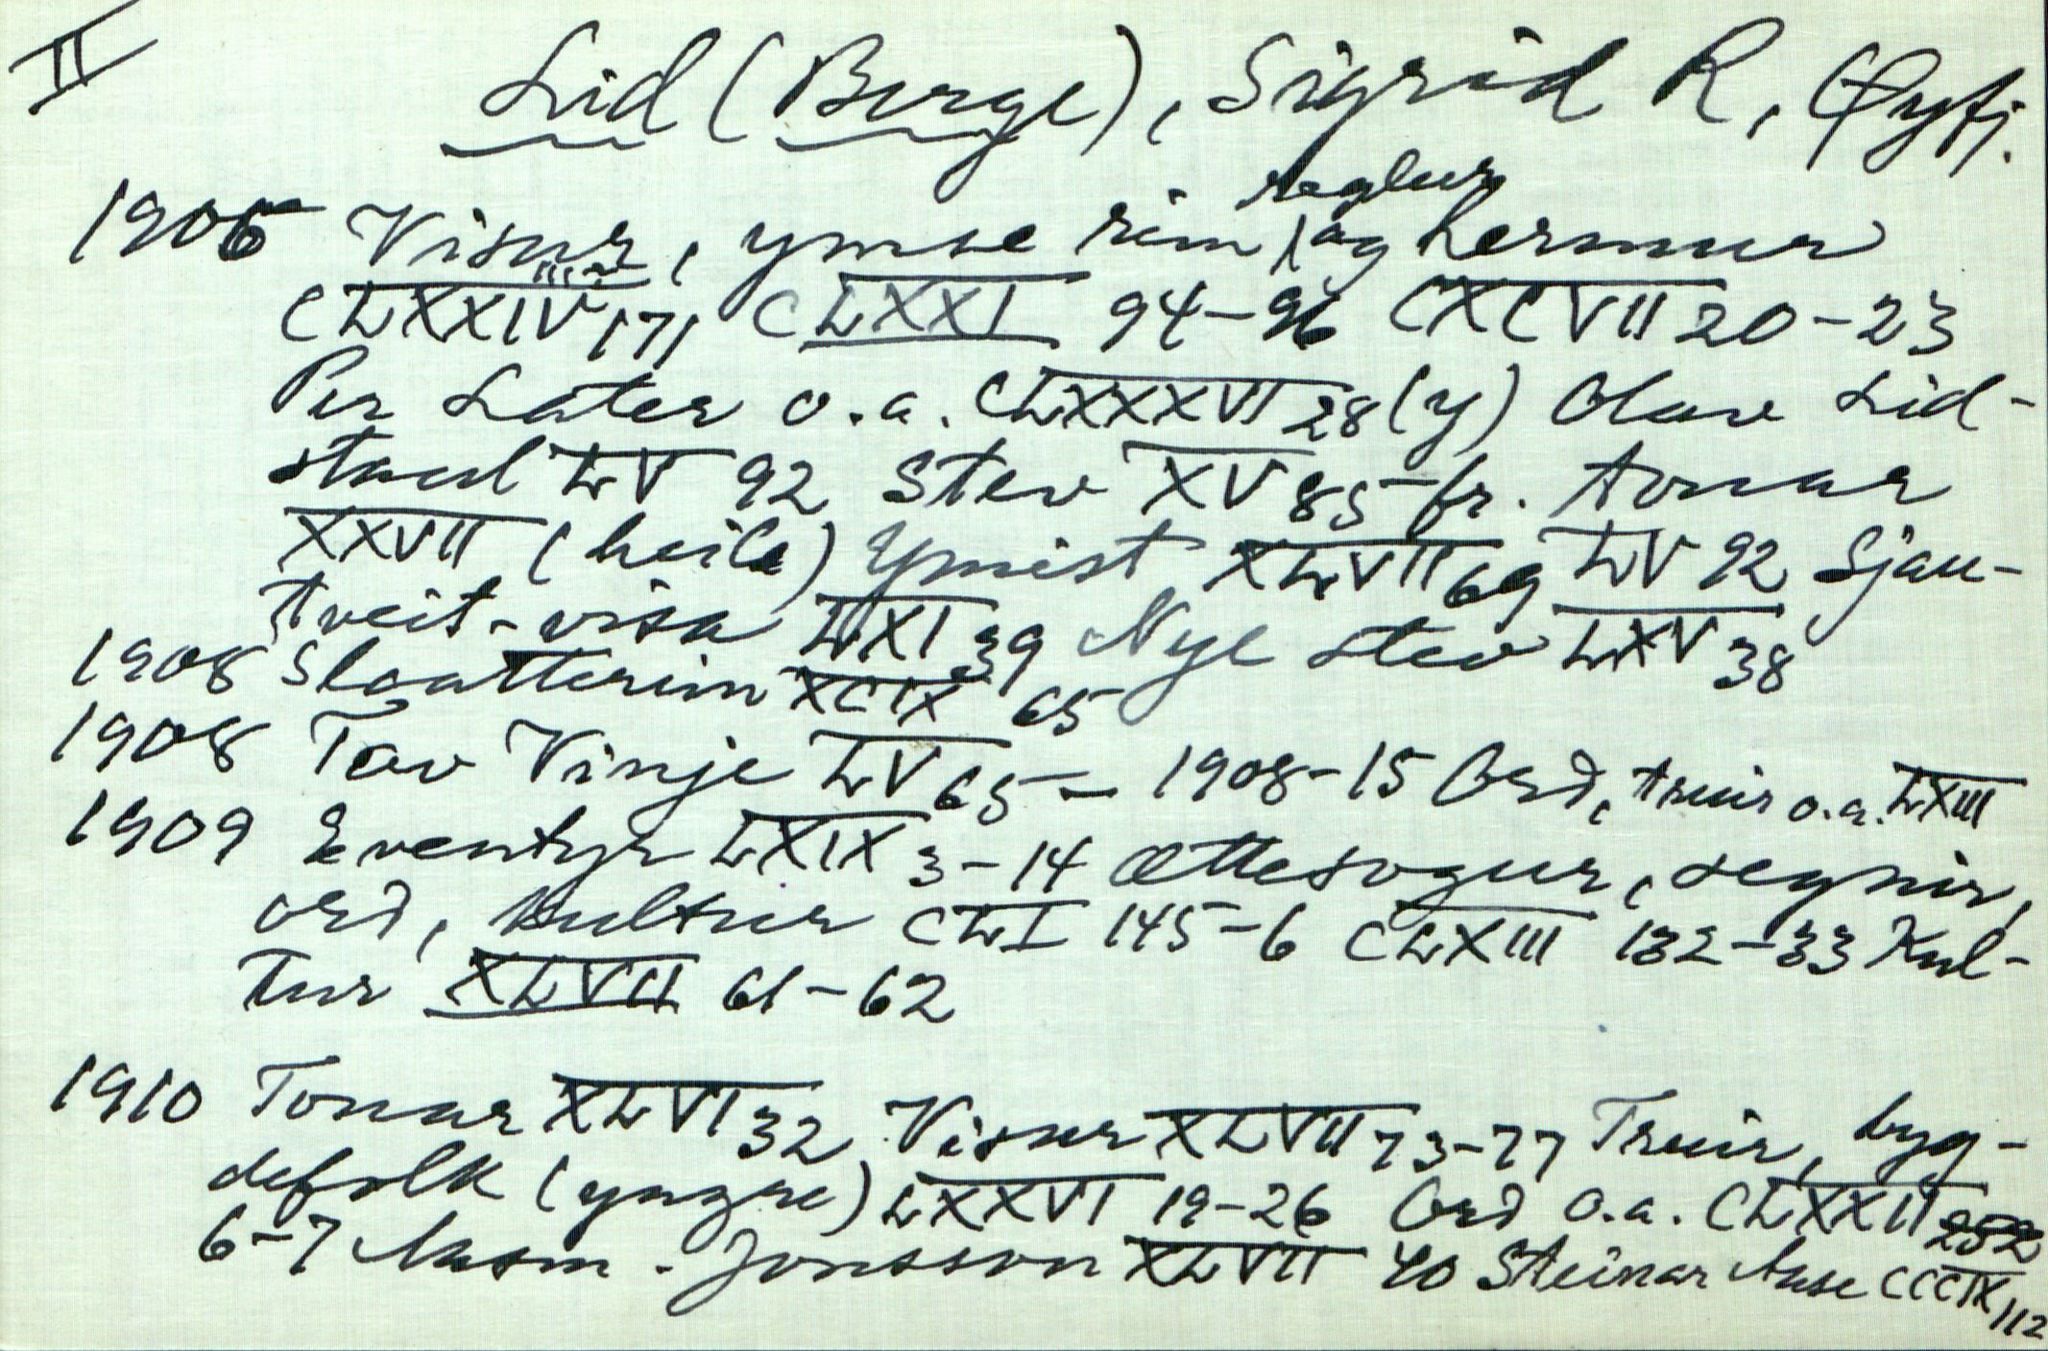 II
Lid (Berge), Sigrid R, Øyfj.
reglur
1906 Visur, ymse rim, og hermur
CLXXIV 171 CLXXI 94-96 CXCVII 20-23
Per Låter o.a. CLXXXVI 28 (y) Olav Lid-
staul LV 92 Stev XV 85 fr. Tonar
XXVII (heile) Ymist XLVII 69 LV 92 Sjau-
tveit-visa LXI 39 Nye stev LXV 38
1908 Slaatterim XCIX 65
1908 Tov Vinje LV 65 - 1908-15 Ord, truir o.a. LXIII
1909 Eventyr LXIX 3-14 Ættesogur, segnir,
ord, kultur CLI 145-6 CLXIII 132-33 Kul-
tur XLVII 61-62
1910 Tonar XLVI 32 Visur XLVII 73-77 Truir, byg-
defolk (yngre) LXXVI 19-26 Ord o.a. CLXXII 252
6-7 Aasm. Jonsson XLVII 40 Steinar Aase CCCIX 112